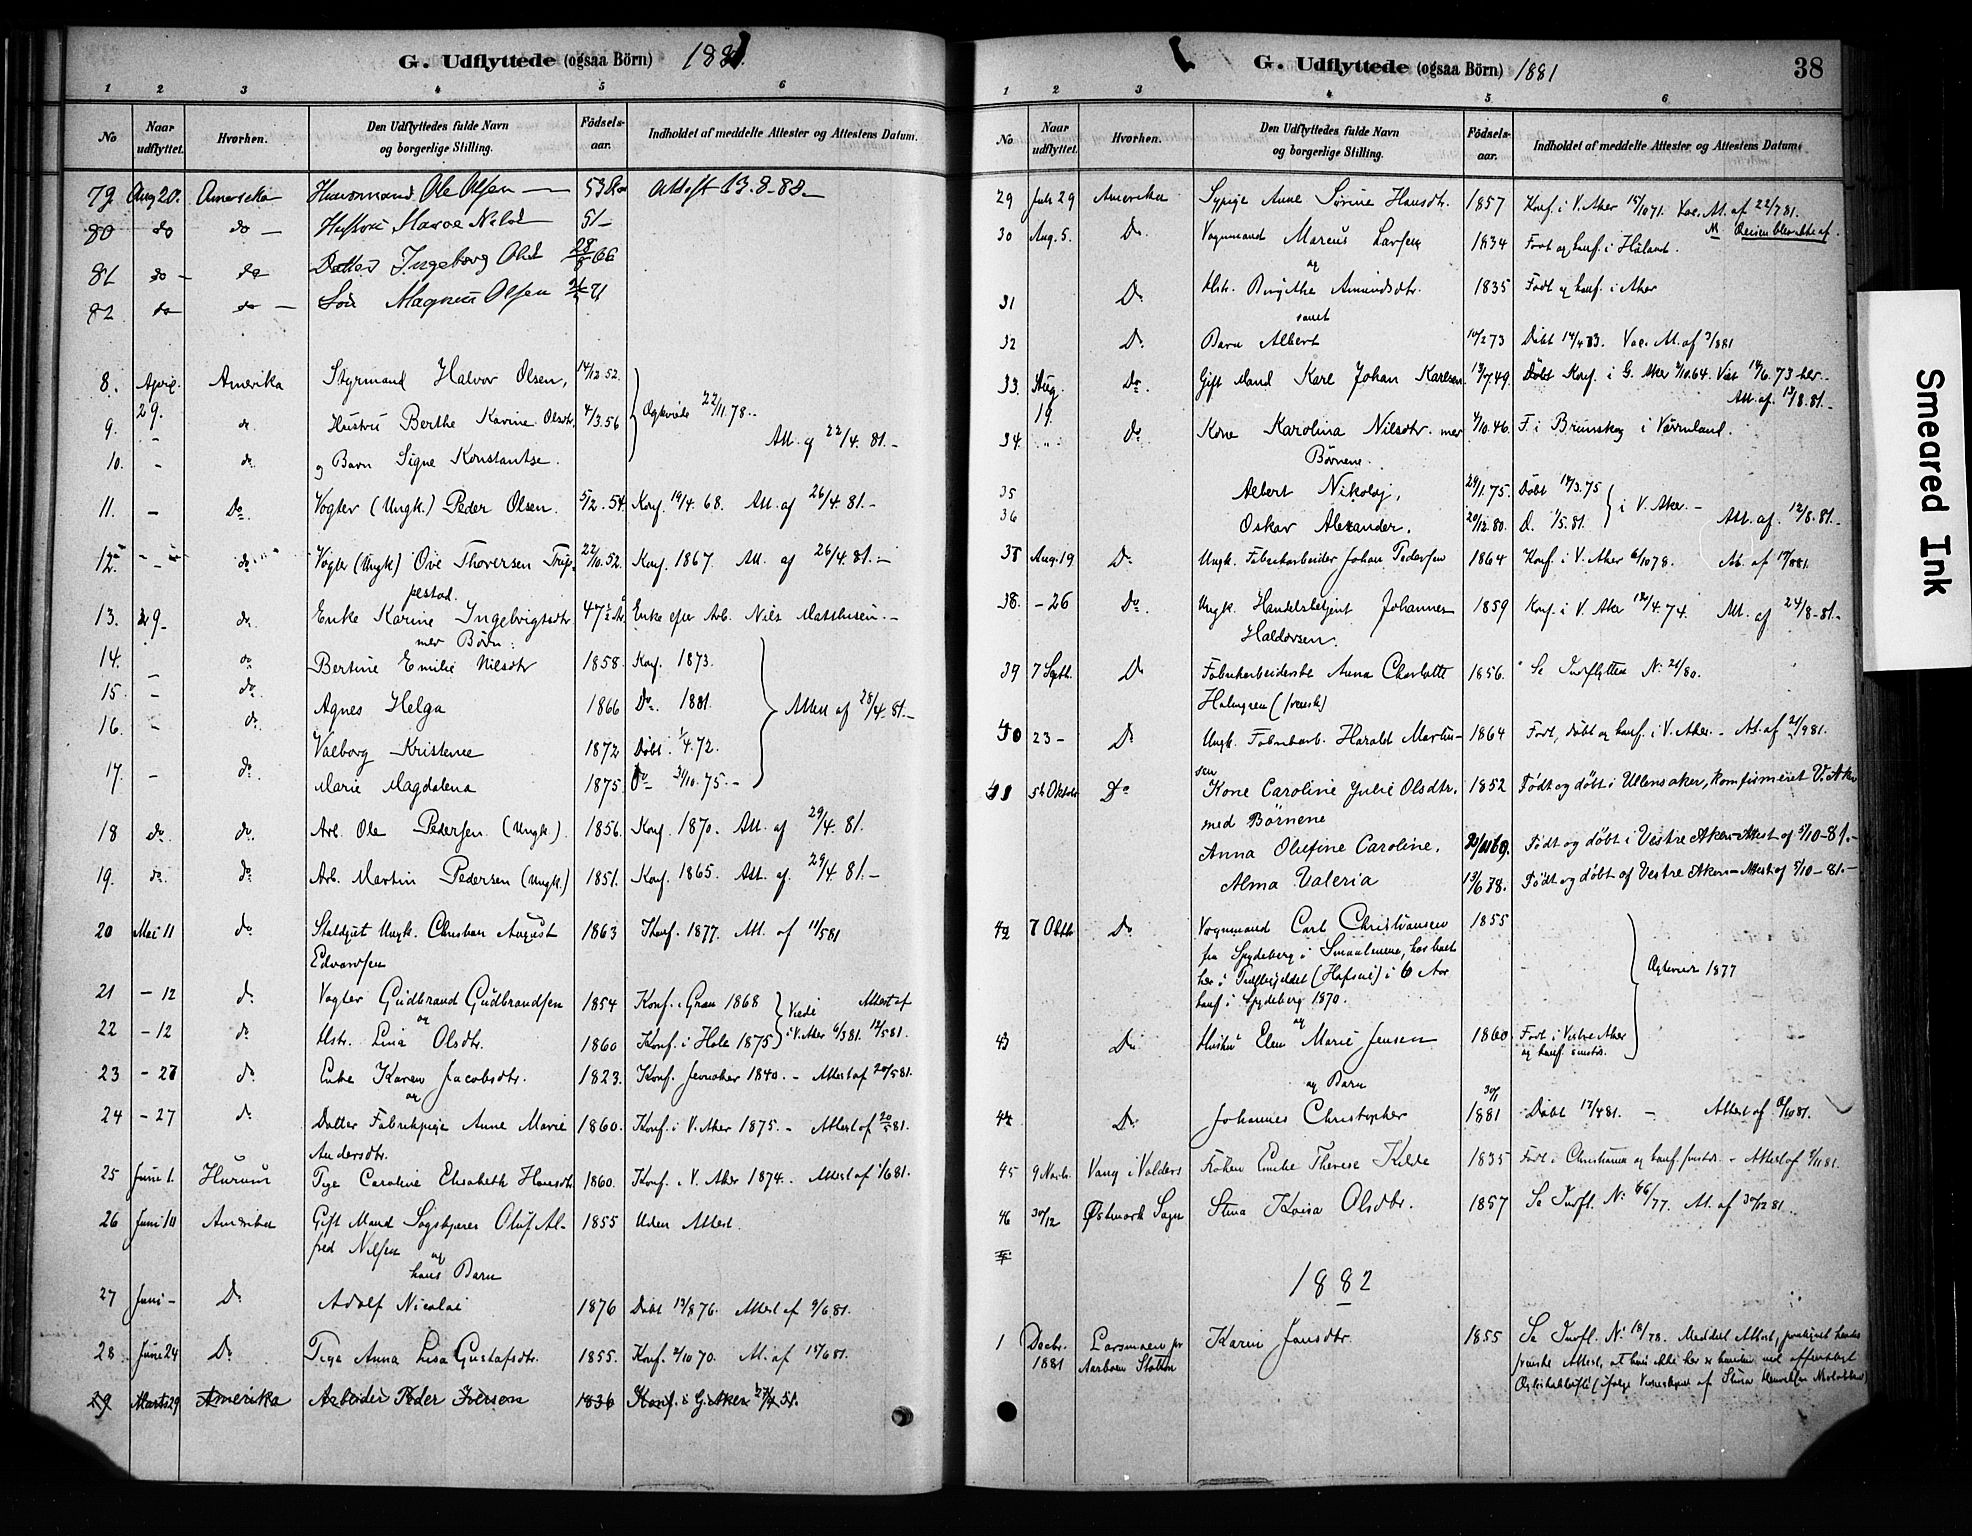 G. Udflyttede (ogsaa Börn) 1881.
1 2 3 4 5 6
No Naar udflyttet. Hvorhen. Den Udflyttedes fulde Navn og borgerlige Stilling. Födsels-aar. Indholdet af meddelte Attester og Attestens Datum.
79 Aug 20. Amerika Ole Olsen 13-8-80
80 do do
81 do do Datter Ingeborg 28/8 66
82 do do Søn Magnus Olsen 71
8. April 29. Amerika Styrmand Halvor Olsen, 14/12 52.
9. - do Hustru Berthe Karine Olsdtr. 4/3.56 Egteviede 22/11.78.- Att. af 22/4.81.-
10. - do og Barn Signe Konstantse.
11. - Do Vogter (Ungk.) Peder Olsen. 5/12.54. Konf. 19/4.68. Att. af 26/4.81.-
12. - do Vogter (Ungk) Ove Thoversen Trip-
pestad. 22/10.52. Konf. 1867. Att. af 26/4.81.-
13. 29. do Enke Karine Ingebrigtsdtr 47 1/2 År Enke efter Arb. Nils Matthisen.-
mer Børn:
14. - do Bertine Emilie Nilsdtr 1858. Konf. 1873.
15. - do Agnes Helga 1866 Do 1881. Attest af 28/4.81.-
16. - do Valborg Kristense 1872 Døbt 1/4.72.
17. - do Marie Magdalena 1875. Do 31/10.75.-
18 do. do. Arb. Ole Pedersen (Ungk.). 1856. Konf. 1870. Att. af 29/4.81.
19. do. do. Arb. Martin Pedersen (Ungk.) 1851. Konf. 1865. Att. af 29/4 81.-
20 Mai 11 do Staldgut Ungk. Christian August 1863 Konf. 1877. Att. af 11/5 81
Edvardsen
21 - 12 do Vogter Gudbrand Gudbrandsen 1854 Konf. i Gran 1868 Viede Attest af
og
22 - 12 do Hstr. Lina Olsdtr. 1860 Konf. i Hole 1875 i V. Aker 6/3 81. 12/5 81.
23 - 27 do Enke Karen Jacobsdtr. 1823. Konf. Jevnaker 1840. - Attest af 20/5 81.
og
24 - 27 do Datter Fabrikpige Anne Marie 1860. Konf. i V. Aker 1875. - Attest af 20/5 81.
Andersdtr.
25 Juni 1. Hurum Pige Caroline Elisabeth Hansdtr 1860. Konf. i V. Aker 1874. Attest af 1/6 81.
26 Juni 10 Amerika Gift Mand Sagskjærer Oluf Al- 1855 Uden Attest.
fred Nilsen og
hans Barn
27 Juni - Do Adolf Nicolai 1876 Døbt 13/8 76. Attest af 9/6 81.
28 Juni 24 Do Pige Anna Lisa Gustafsdtr. 1855. Konf. 2/10 70. At. af 15/6 81.
29 Marts 29 Amerika Arbeider Peder Iversen 1836 Konf. i G. Aker 51.
G. Udflyttede (ogsaa Börn) 1881 38
1 2 3 4 5 6
No Naar udflyttet. Hvorhen. Den Udflyttedes fulde Navn og borgerlige Stilling. Födsels-aar. Indholdet af meddelte Attester og Attestens Datum.
29 Juli 29 Amerika Sypige Anne Sørine Hansdtr. 1857 Konf. i V. Aker 15/10 71. Vac. At. af 22/7 81.
30 Aug. 5. Do Vognmand Marcus Larsen 1834 Født og konf. i Høland.
og
31 Do Hstr. Birgithe Amundsdtr. 1835 Født og konf. i Aker
samt
32 Do Barn Albert 14/2 73 Døbt 14/4 73. Vac. At. af 3/8 81
33. Aug. 19. Do Gift Mand Karl Johan Karlsen 13/7.49. Konf. i G. Aker 2/10.64. Viet 14/6.73 her.- Att. af 13/8.81.-
34. Do Kone Karolina Nilsdtr. mer 4/10.46. F. i Brunskog i Värmland.
Børnene.
35 Albert Nikolaj, 29/1.75. Døbt 17/3.75 i V. Aker.-
36 Oskar Alexander. 20/12.80. D. 1/5.81. Att. af. 12/8.81.-
38 Aug. 19 Do Ungk. Fabrikarbeider Johan Pedersen 1864 Konf. i V. Aker 6/10 78. At. af 17/8 81.
38. - 26 Do Ungk. Handelsbetjent Johannes 1859 Konf. i V. Aker 12/4.74. Att. af 24/8-81.-
Haldorsen.
39 7 Septb. Do Fabrikarbeiderske Anna Charlotte 1856. Se Indflyttede No 21/80.
Holmgren (svensk)
40 23 - Do Ungk. Fabrikarb. Harald Martin- 1864 Født, døbt og konf. i V. Aker. - At. af 21/9 81.
sen
41 5te Oktober Do Kone Caroline Julie Olsdtr. 1852 Født og døbt i Ullensaker, konfirmeret V. Aker
med Børnene
Anna Olufine Caroline. Født og døbt i Vestre Aker. Attest af 5/10-81.-
Alma Valeria 13/6 78. Født og døbt af Vestre Aker. Attest af 5/10-81.-
42 7 Oktb Do Vognmand Carl Christiansen 1855
fra Spydeberg i Smaalenene, har boet
her i (Hafsni) i 6 Aar Egteviet 1877
konf. i Spydeberg 1870.
og
43 Do Hustru Elen Marie Jensen 1860 Født i Vestre Aker
og konf. smstds.
og Barn
44 Do Johannes Christopher 30/1 1881 Døbt 17/4 81. - Attest af 6/10 81.
45 9 Novbr. Vang i Valders Frøken Emilie Therese Kilde 1835 Født i Christiania og konf. smstds. - Attest af 9/11 81.
46 30/12 Østmark Sogn Stina Kaisa Olsdtr. 1857 Se Indfl. No 66/77. At. af 30/12 81.
1882
1 Decbr. 1881 Aarboen Station Karin Jansdtr. 1855 Se Indfl. No 18/78. Meddelt Attest,
Smeared Ink